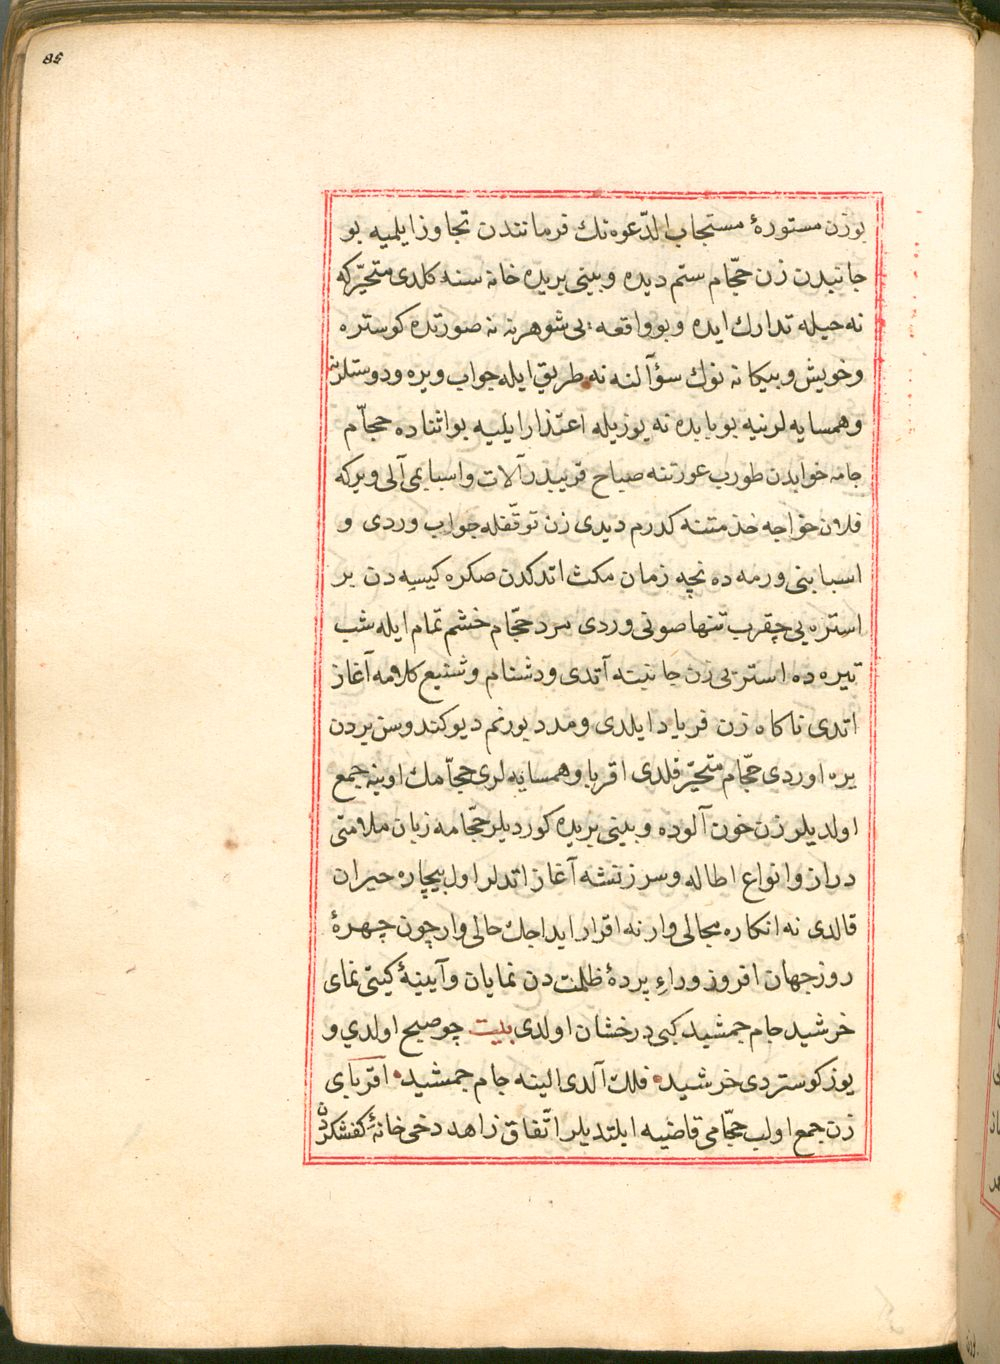 85
بوزن مستورۀ مستجاب الدّعوه نك فرمانندن تجاوز ایلمیه بو
جانبدن زن حجّام ستم دیده و بینی بریده خانه سنه کلدی متحیّر که
نه حیله تدارك ایده و بو واقعه یی شوهرینه نه صورتده کوستره
وخویش و بیکانه نوك سؤآلنه نه طریق ایله جواب ویره و دوستلرنه
وهمسایه لرنیه بو بابده نه یوزیله اعتذار ایلیه بو اثناده حجّام
جامه خوابدن طورب عورتنه صباح قریبدر آلات و اسبابمی آلی ویر که
فلان خواجه خذمتنه کدرم دیدی زن توقّفله جواب وردی و
اسبابنی ورمه ده نچه زمان مکث اتدکدن صکره کیسه دن بر
استره یی چقرب تنها صونی وردی مرد حجّام خشم تمام ایله شب
تیره ده استر یی زن جانبنه آتدی و دشنام و شنیع کلامه آغاز
اتدی ناکاه زن فریاد ایلدی و مدد بورنم دیو کندوسن یردن
یره اوردی حجّام متحیّر قلدی اقربا و همسایه لری حجّامك اوینه جمع
اولدیلر زن خون آلوده و بینی بریده کوردیلر حجّامه زبان ملامتی
دراز و انواع اطاله و سرزنشه آغاز اتدلر اول بیچاره حیران
قالدی نه انکاره مجالی وار نه اقرار ایداجك حالی وار چون چهرۀ
روز جهان افروز وراءِ پردۀ ظلمت دن نمایان و آیینۀ کیتی نمای
خرشید جام جمشید کبی درخشان اولدی بیت چو صبح اولدی و
یوز کوستردی خرشید فلك آلدی الینه جام جمشید اقربای
زن جمع اولب حجّامی قاضیه ایلتدیلر اتّفاق زاهد دخی خانۀ کفشکردن